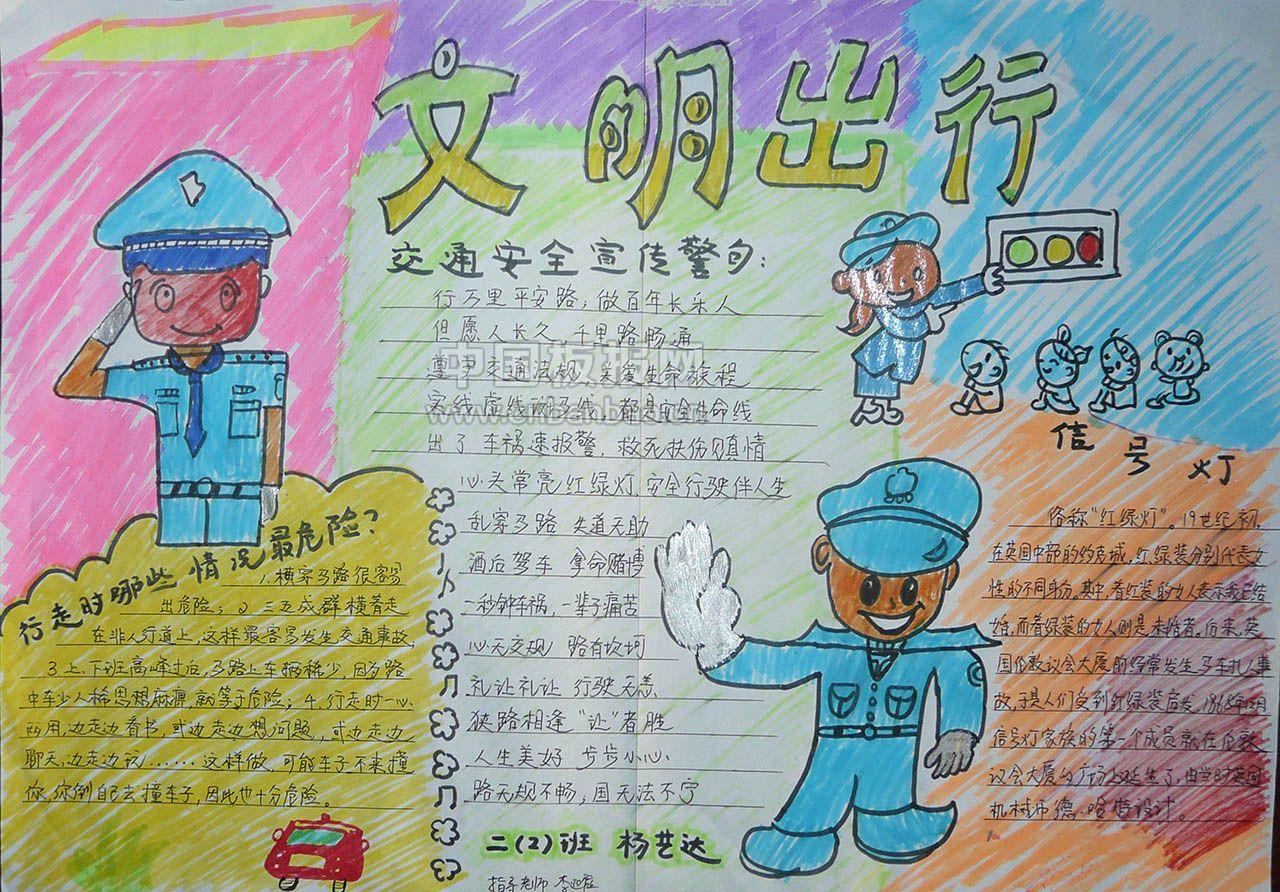 文明出行
交通安全宣传警句:
行万里平安路;做百年长乐人
但愿人长久,千里路畅通
遵章交通法规,关爱生命旅程
实线虚线斑马线,都是安全生命线
出了车祸速报警,救死扶伤见真情
心头常亮红绿灯 安全行驶伴人生
乱穿马路 失道无助
酒后驾车 拿命赌博
一秒钟车祸,一辈子痛苦
心无交规 路有坎坷
礼让礼让 行驶无恙
狭路相逢“让”者胜
人生美好 步步小心
路无规不畅;国无法不宁
二(2)班 杨艺达
指导老师 李
行走时哪些情况最危险?
1.横穿马路很容易
出危险;2.三五成群横着走
在非人行道上,这样最容易发生交通事故,
3.上、下班高峰过后,马路上车辆稀少,因为路
中车少人稀思想麻痹,就等于危险;4.行走时一心
两用,边走边看书,或边走边想问题,或边走边
聊天,边走边玩……这样做,可能车子不来撞
你,你倒自己去撞车子,因此也十分危险。
信号灯
俗称“红绿灯”。19世纪初,
在英国中部的约克城,红、绿装分别代表女
性的不同身份。其中,着红装的女人表示我已结
婚,而着绿装的女人则是未婚者。后来,英
国伦敦议会大厦前经常发生马车轧人事
故,于是人们受到红绿装启发,1868年12月
信号灯家族的第一个成员就在伦敦
议会大厦的广场上诞生了,由当时英国
机械师德·哈特设计。
中国板报网
www.cnbanbao.cn